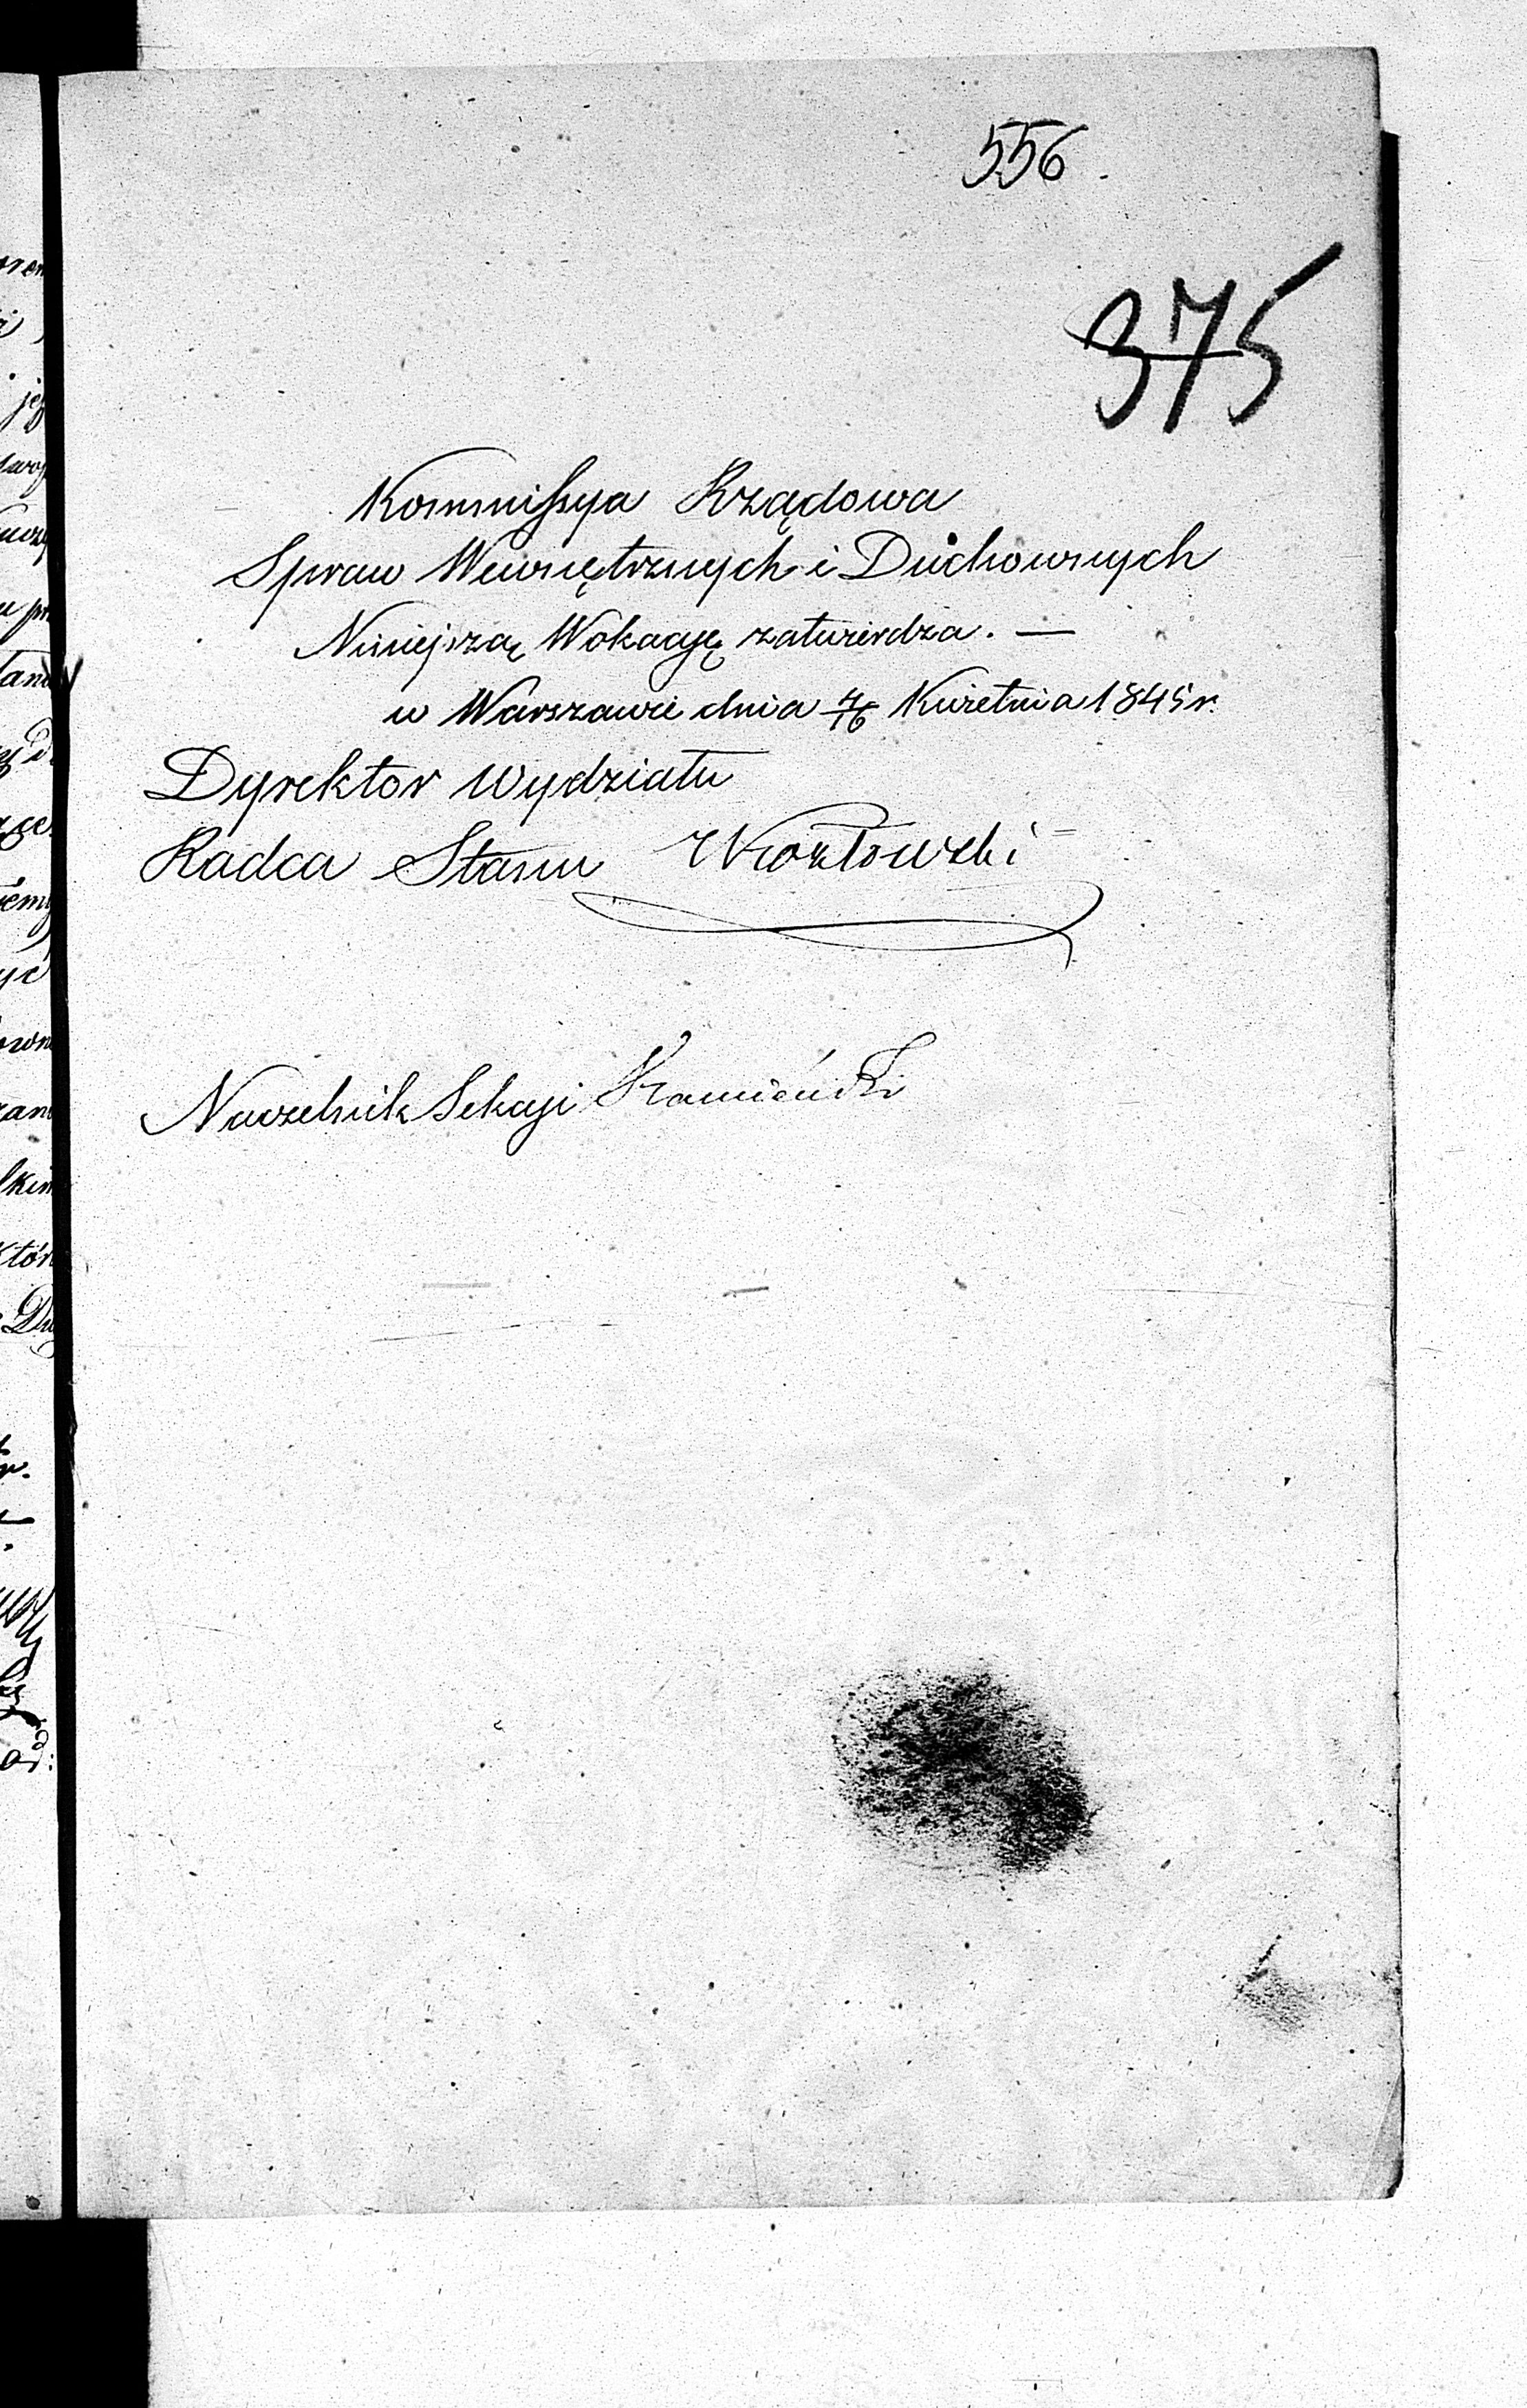 556.
375
Kommissya Rządowa
Spraw Wewnętrznych i Duchownych
Niniejszą Wokacyę zatwierdza. —
w Warszawie dnia 4/16 Kwietnia 1845 r.
Dyrektor Wydziału
Radca Stanu Kozłowski
Naczelnik Sekcyi Kamieński